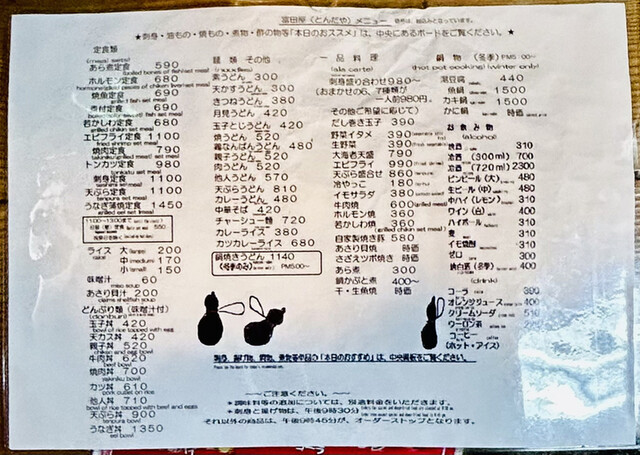 富田屋（とんだや）メニュー
★刺身・揚もの・焼もの・煮物・酢の物等「本日のおススメ」は、中央にあるボードをご覧ください。
定食類
(meal sets)
あら煮定食 590
ホルモン定食 680
焼魚定食 690
(grill fish set meal)
煮付定食 690
若かしわ定食 680
(grilled chikin set meal)
エビフライ定食 1100
(fried shrimp set meal)
焼肉定食 790
トンカツ定食 980
(tonkatu set meal)
刺身定食 1100
(sashimi set meal)
天ぷら定食 1100
(tenpura set meal)
うなぎ蒲焼定食 1450
ライス 大(large) 200
中(medium) 170
小(small) 150
味噌汁 60
miso soup
あさり貝汁 200
clams shellfish soup
どんぶり類（味噌汁付）
(donburi)
玉子丼 420
bowl of rice topped with egg
天カス丼 420
親子丼 520
chikin and egg bowl
牛肉丼 620
beef bowl
焼肉丼 700
yakiniku bowl
カツ丼 610
pork cutlet on rice
他人丼 710
bowl of rice topped with beef and eggs
天ぷら丼 900
tenpura bowl
うなぎ丼 1350
eel bowl
麺類 その他
(noodles)
素うどん 300
天かすうどん 300
きつねうどん 380
月見うどん 420
玉子とじうどん 420
焼うどん 520
鍋なんばんうどん 480
親子うどん 520
肉うどん 520
他人うどん 570
天ぷらうどん 810
カレーうどん 480
中華そば 420
チャーシュー麺 720
カレーライス 380
カツカレーライス 680
鍋焼きうどん 1140
(冬季のみ) PM5:00～
一品料理
(ala carte)
刺身盛り合わせ 980～
(おまかせの6、7種類が
一人前980円。
その他ご希望に応じて)
だし巻き玉子 390
野菜イタメ 390
生野菜 390
大海老天盛 790
エビフライ 990
天ぷら盛合せ 860
冷やっこ 180
イモサラダ 380
牛肉焼 600
ホルモン焼 360
若かしわ焼 360
(grilled chiken set meal)
自家製焼き豚 580
あさり貝焼 時価
さざえツボ焼き 時価
あら煮 300
鯛かぶと煮 400～
干・生魚焼 時価
鍋物（冬季）PM5:00～
(hot pot cooking)(winter only)
湯豆腐 440
魚鍋 1500
カキ鍋 1500
かに鍋 時価
お飲み物
(alcohol)
焼酒 310
冷酒(300ml) 700
冷酒(720ml) 2300
ビンビール(大) 480
生ビール(中) 480
中ハイ(レモン) 310
ワイン(白) 400
ハイボール 400
麦 310
イモ焼酎 310
ゼロ 300
(drink)
コーラ
オレンジジュース 400
クリームソーダ
ウーロン茶
コーヒー 400
(ホット・アイス)
～～ご注意ください。～～
＊調味料等の追加については、別途料金をいただきます。
＊刺身と揚げ物は、午後9時30分
それ以外の商品は、午後9時45分が、オーダーストップとなります。